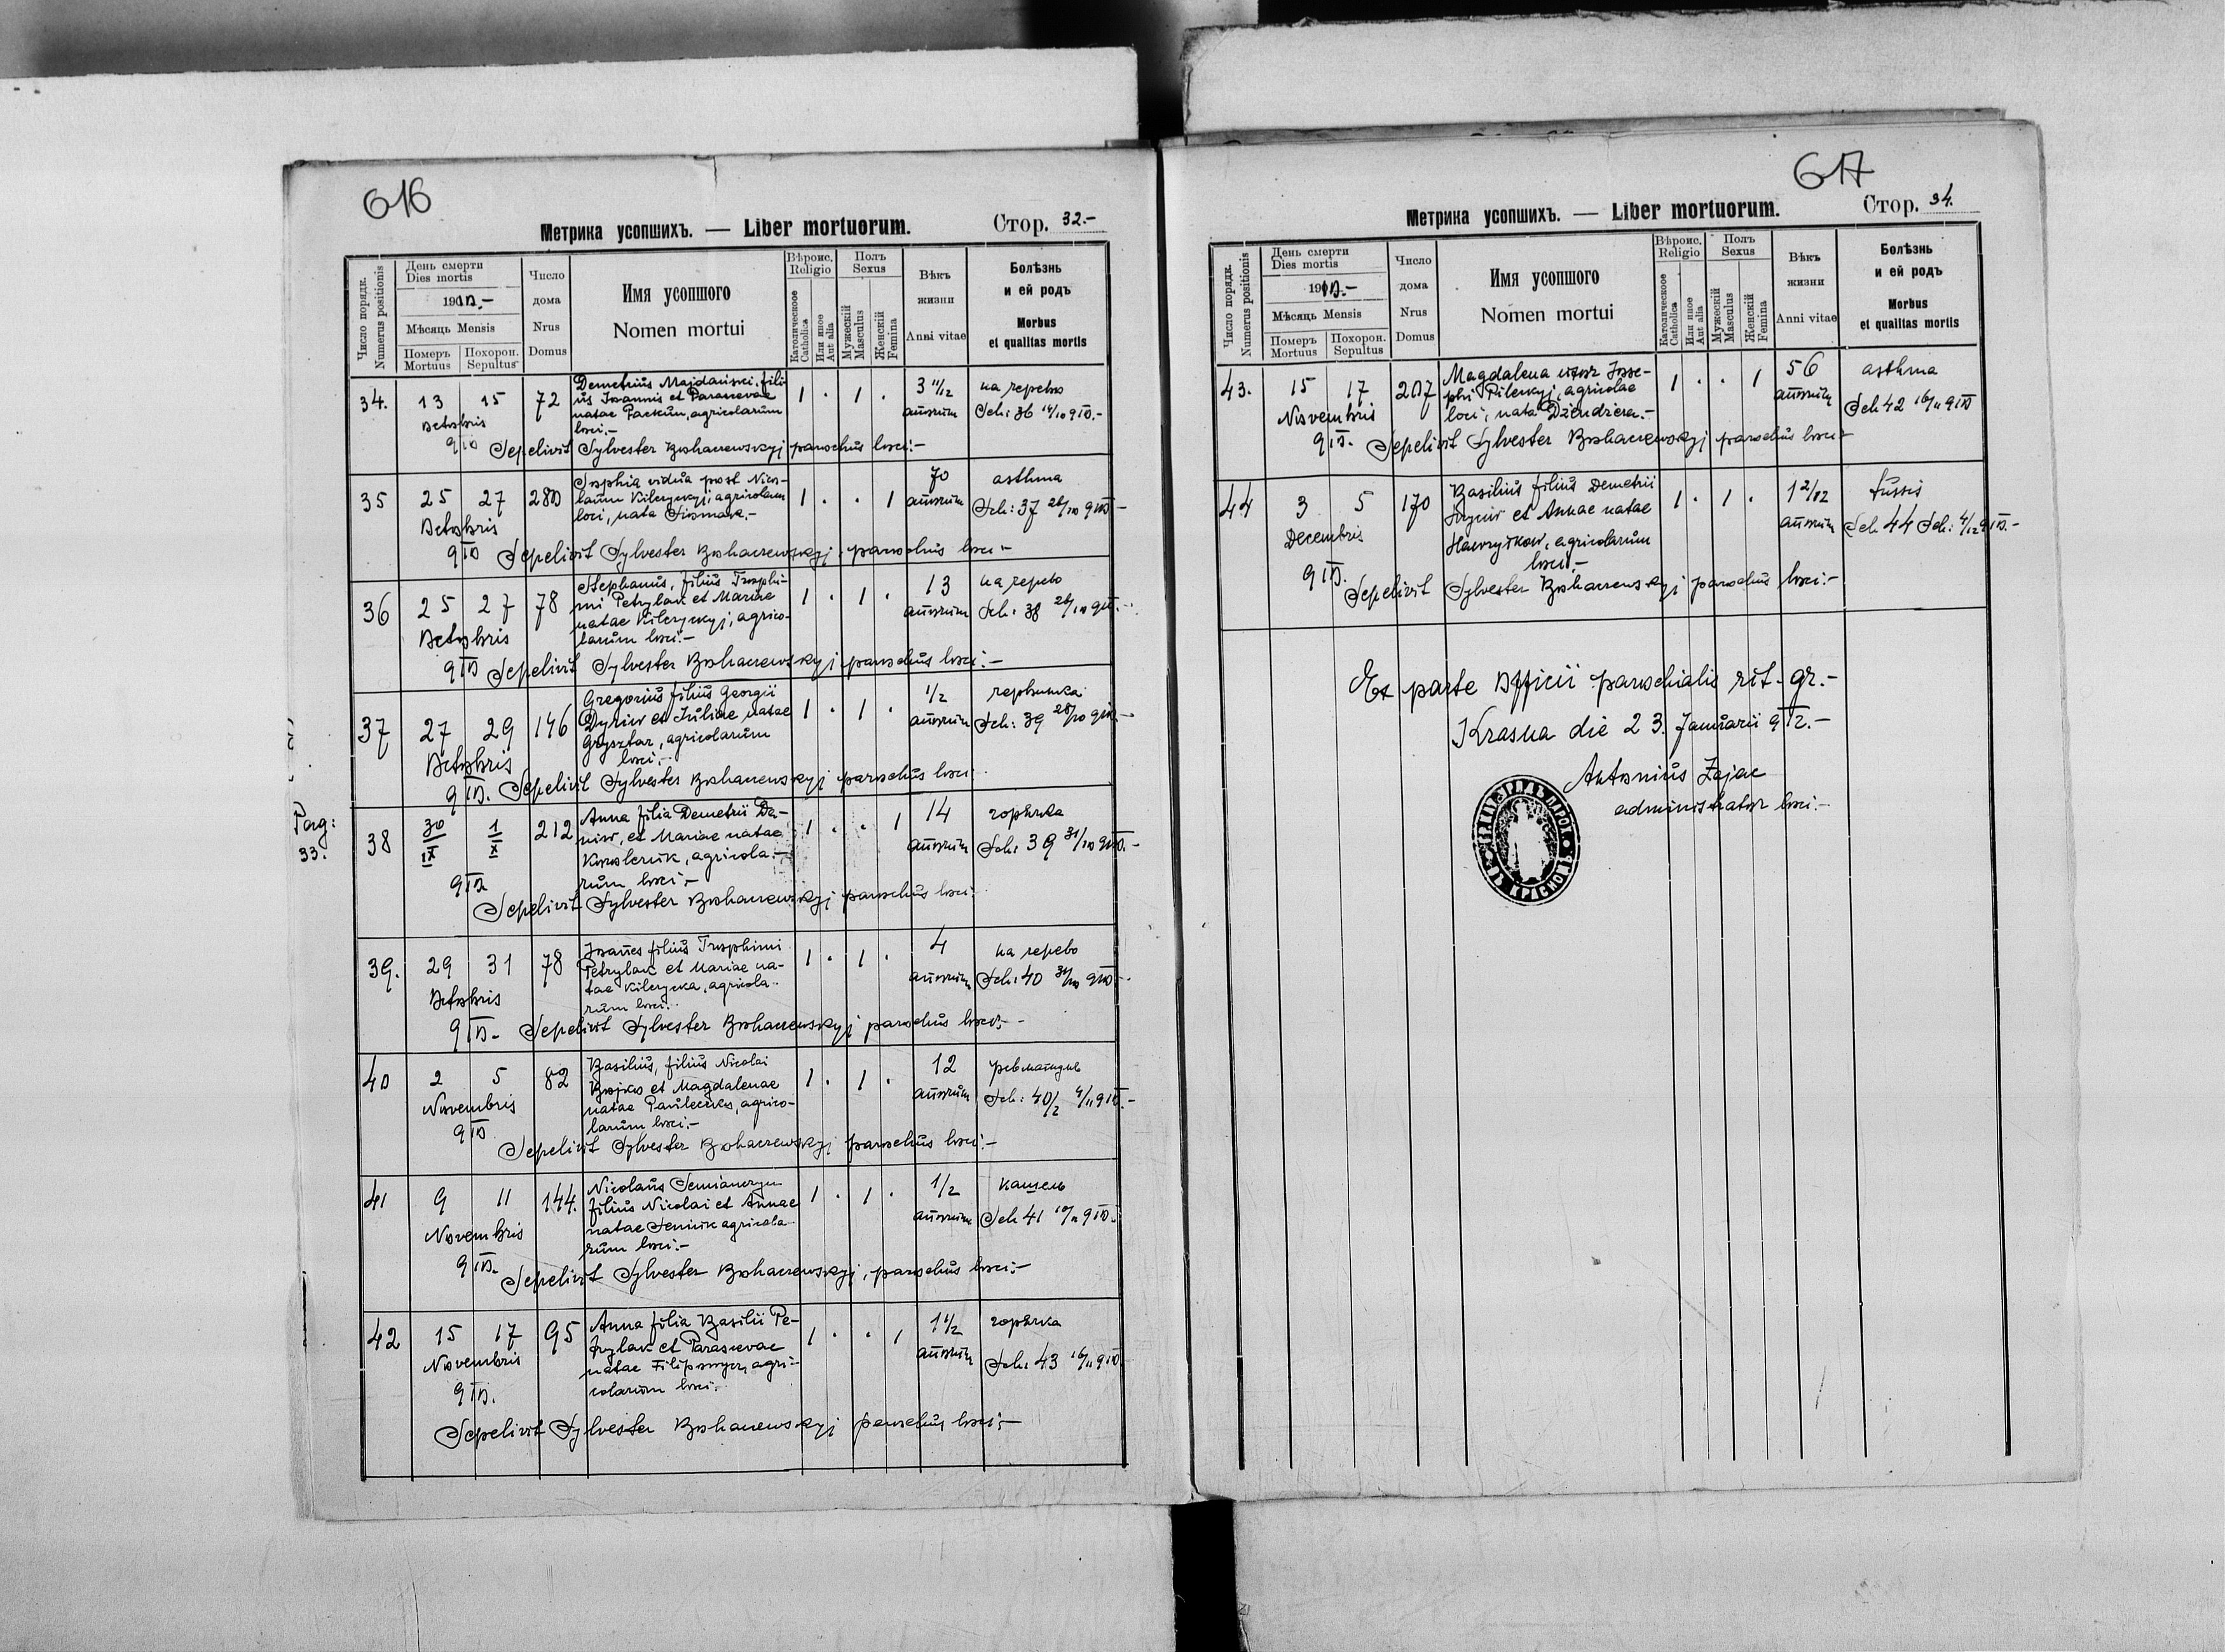 616
Метрика усопшихъ. — Liber mortuorum.
Стор. 32.-
Число порядк.
Numerus positionis
День смерти
Dies mortis
1910.-
Мѣсяць Mensis
Померъ
Mortuus
Похорон.
Sepultus
Число
дома
Nrus
Domus
Имя усопшого
Nomen mortui
Вѣроис.
Religio
Католическоое
Catholica
Или иное
Aut alia
Полъ
Sexus
Мужескій
Masculus
Женскій
Femina
Вѣкъ
жизни
Anni vitae
Болѣзнь
и ей родъ
Morbus
et qualitas mortis
34. 13 15 72 Demetrius Majdański, fili-
us Joannis et Parascevae
natae Packun, agricolarum
loci.-
1 . 1 . 3 11/12
annorum
на черево
Sch: 36 14/10 910.-
Octobris
910 Sepelivit Sylvester Bohaczewskyj parochus loci.-
35 25 27 280 Sophia vidua post Nico-
laum Kilczyckyj, agricolam
loci, nata
1 . . 1 70
annorum
asthma
Sch: 37 26/10 910 -
Octobris
910 Sepelivit Sylvester Bohaczewskyj parochus loci -
36 25 27 78 Stephanus, filius Trophi-
mi Petrylak et Mariae
natae Kilczyckyj, agrico-
larum loci.-
1 . 1 . 13
annorum
на черево
Sch: 38 26/10 910.-
Octobris
910 Sepelivit Sylvester Bohaczewskyj parochus loci.-
37 27 29 146 Gregorius filius Georgii
Dyriw et Juliae natae
Grysztar, agricolarum
loci.-
1 . 1 . 1/2
annorum
Sch: 39 28/10 910.-
Octobris
910. Sepelivit Sylvester Bohaczewskyj parochus loci
Pag:
33.
38 30/IX 1/X 212 Anna filia Demetrii Da-
niw, et Mariae natae
Kowalczuk, agricola-
rum loci.-
1 . . 1 14
annorum
горячка
Sch: 39 31/10 910.-
910
Sepelivit Sylvester Bohaczewskyj parochus loci.
39. 29 31 78 Joannes filius Trophimi
Petrylak et Mariae na-
tae Kilczycka, agricola-
rum loci.
1 . 1 . 4
annorum
на черево
Sch: 40 30/10 910.-
Octobris
910.- Sepelivit Sylvester Bohaczewskyj parochus loci.-
40 2 5 82 Basilius, filius Nicolai
Bojko et Magdalenae
natae Pauleczko, agrico-
larum loci.-
1 . 1 . 12
annorum
Sch: 40/2 4/11 910.-
Novembris
910
Sepelivit Sylvester Bohaczewskyj parochus loci.-
41 9 11 144. Nicolaus Semianczyn
filius Nicolai et Annae
natae Seniuk agricola-
rum loci.-
1 . 1 . 1/2
annorum
кашель
Sch 41 10/11 910.
Novembris
910.
Sepelivit Sylvester Bohaczewskyj, parochus loci.-
42 15 17 95 Anna filia Basilii Pe-
trylak et Parascevae
natae agri-
colarum loci.
1 . . 1 1 1/2
annorum
горячка
Sch: 43 16/11 910.
Novembris
910.
Sepelivit Sylvester Bohaczewskyj parochus loci.-
617
Метрика усопшихъ. — Liber mortuorum.
Стор. 34.
Число порядк.
Numerus positionis
День смерти
Dies mortis
1910.-
Мѣсяць Mensis
Померъ
Mortuus
Похорон.
Sepultus
Число
дома
Nrus
Domus
Имя усопшого
Nomen mortui
Вѣроис.
Religio
Католическоое
Catholica
Или иное
Aut alia
Полъ
Sexus
Мужескій
Masculus
Женскій
Femina
Вѣкъ
жизни
Anni vitae
Болѣзнь
и ей родъ
Morbus
et qualitas mortis
43. 15 17 207 Magdalena uxor Jose-
phi Pileckyj, agricolae
loci, nata Dziendziera.-
1 . . 1 56
annorum
asthma
Sch 42 16/11 910
Novembris
910. Sepelivit Sylvester Bohaczewskyj parochus loci-
44 3 5 170 Basilius filius Demetrii
et Annae natae
Hawryłkow, agricolarum
loci.-
1 . 1 . 1 2/12
annorum
tussis
Sch 44 Sch: 4/12 910.-
Decembris
910.
Sepelivit Sylvester Bohaczewskyj parochus loci.-
Ex parte Officii parochialis rit. gr.-
Krasna die 23. Januarii 912.-
Antonius Zajac
administrator loci.-